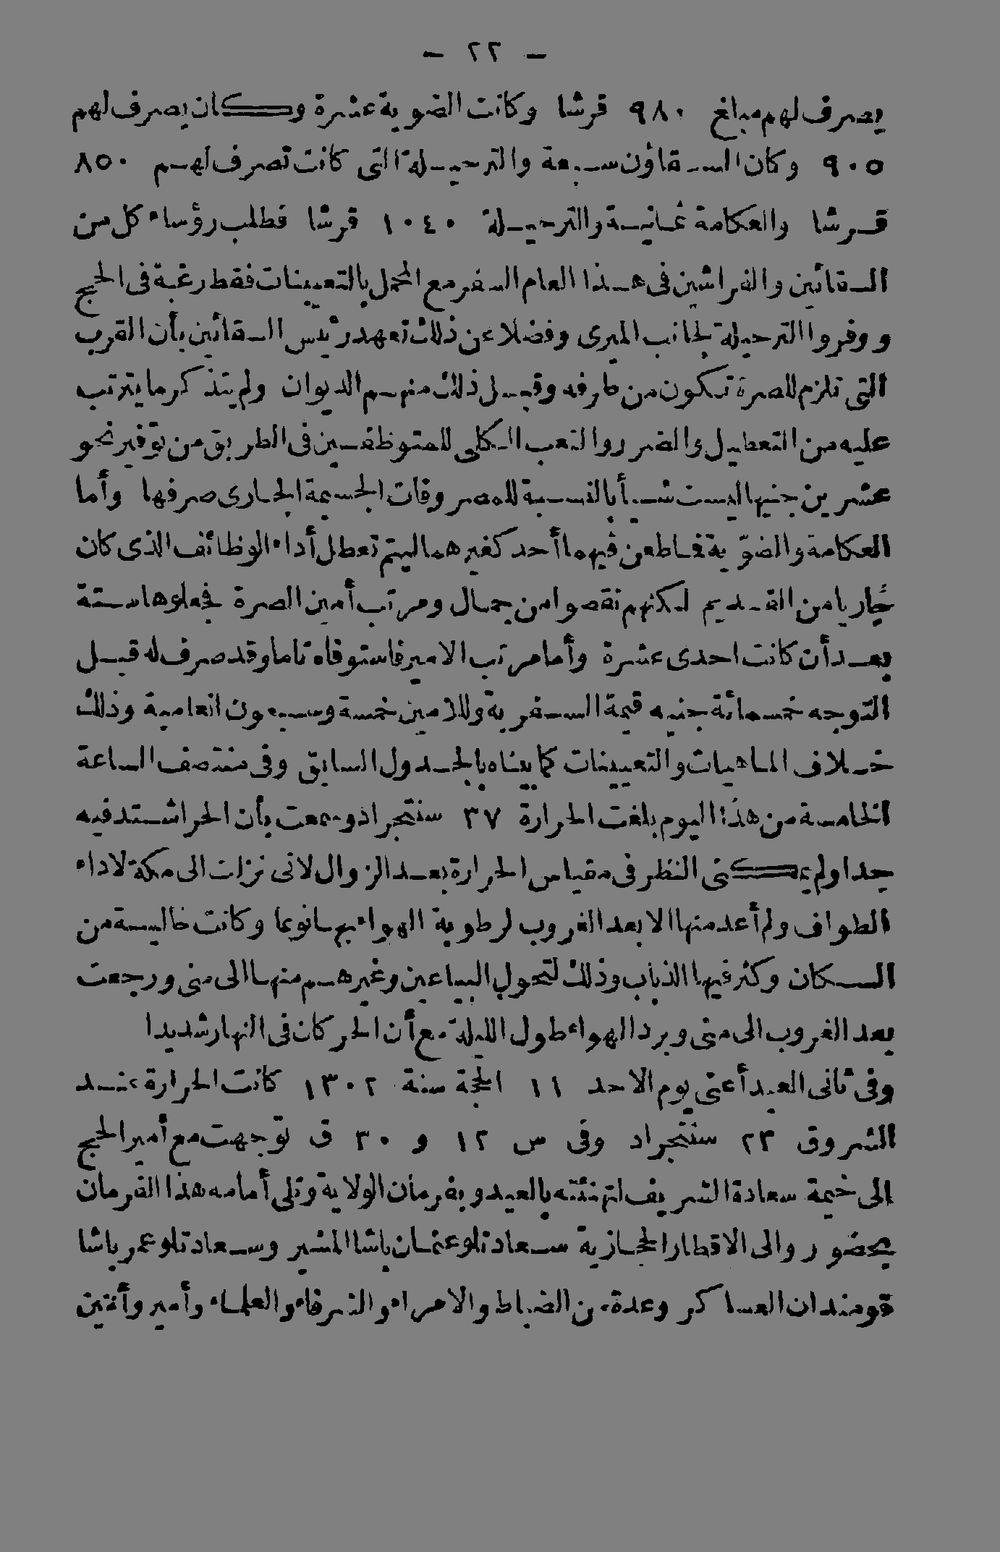 — ٢٢ —
يصرف لهم مبلغ ٩٨٠ قرشا وكانت الضوية عشرة وكان يصرف لهم
٩٠٥ وكان السقاؤن سبعة والترحيلة التى كانت تصرف لهم ٨٥٠
قرشا والعكامة ثمانية والترحيلة ١٠٤٠ قرشا فطلب رؤساء كل من
السقائين والفراشين فى هذا العام السفر مع المحمل بالتعيينات فقط رغبة فى الحج
ووفروا الترحيلة لجانب الميرى وفضلا عن ذلك تعهد رئيس السقائين بأن القرب
التى تلزم للصرة تكون من طرفه وقبل ذلك منهم الديوان ولم يتذكر ما يترتب
عليه من التعطيل والضرر والتعب الكلى للمتوظفين فى الطريق من توفير نحو
عشرين جنيها ليست شيأ بالنسبة للمصروفات الجسيمة الجارى صرفها وأما
العكامة والضوّية فما طعن فيهما أحد كغيرهما ليتم تعطل أداء الوظائف الذى كان
جاريا من القديم لكنهم نقصوا من جمال ومرتب أمين الصرة فجعلوها ستة
بعد أن كانت احدى عشرة وأما مرتب الامير فاستوفاه تاما وقد صرف له قبل
التوجه خمسمائة جنيه قيمة السفرية وللامين خمسة وسبعون انعامية وذلك
خلاف الماهيات والتعيينات كما بيناه بالجدول السابق وفى منتصف الساعة
الخامسة من هذا اليوم بلغت الحرارة ٣٧ سنتجراد وسمعت بأن الحر اشتد فيه
جدا ولم يمكنى النظر فى مقياس الحرارة بعد الزوال لانى نزلت الى مكة لاداء
الطواف ولم أعد منها الا بعد الغروب لرطوبة الهواء بها نوعا وكانت خالية من
السكان وكثر فيها الذباب وذلك لتحول البياعين وغيرهم منها الى منى ورجعت
بعد الغروب الى منى وبرد الهواء طول الليلة مع أن الحر كان فى النهار شديدا
وفى ثانى العيد أعنى يوم الاحد ١١ الحجة سنة ١٣٠٢ كانت الحرارة عند
الشروق ٢٣ سنتجراد وفى س ١٢ و ٣٠ ق توجهت مع أمير الحج
الى خيمة سعادة الشريف لتهنئته بالعيد وبفرمان الولاية وتلى أمامه هذا الفرمان
بحضور والى الاقطار الحجازية سعادتلو عثمان باشا المشير وسعادتلو عمر باشا
قومندان العساكر وعدة من الضباط والامراء والشرفاء والعلماء وأمير وأمين